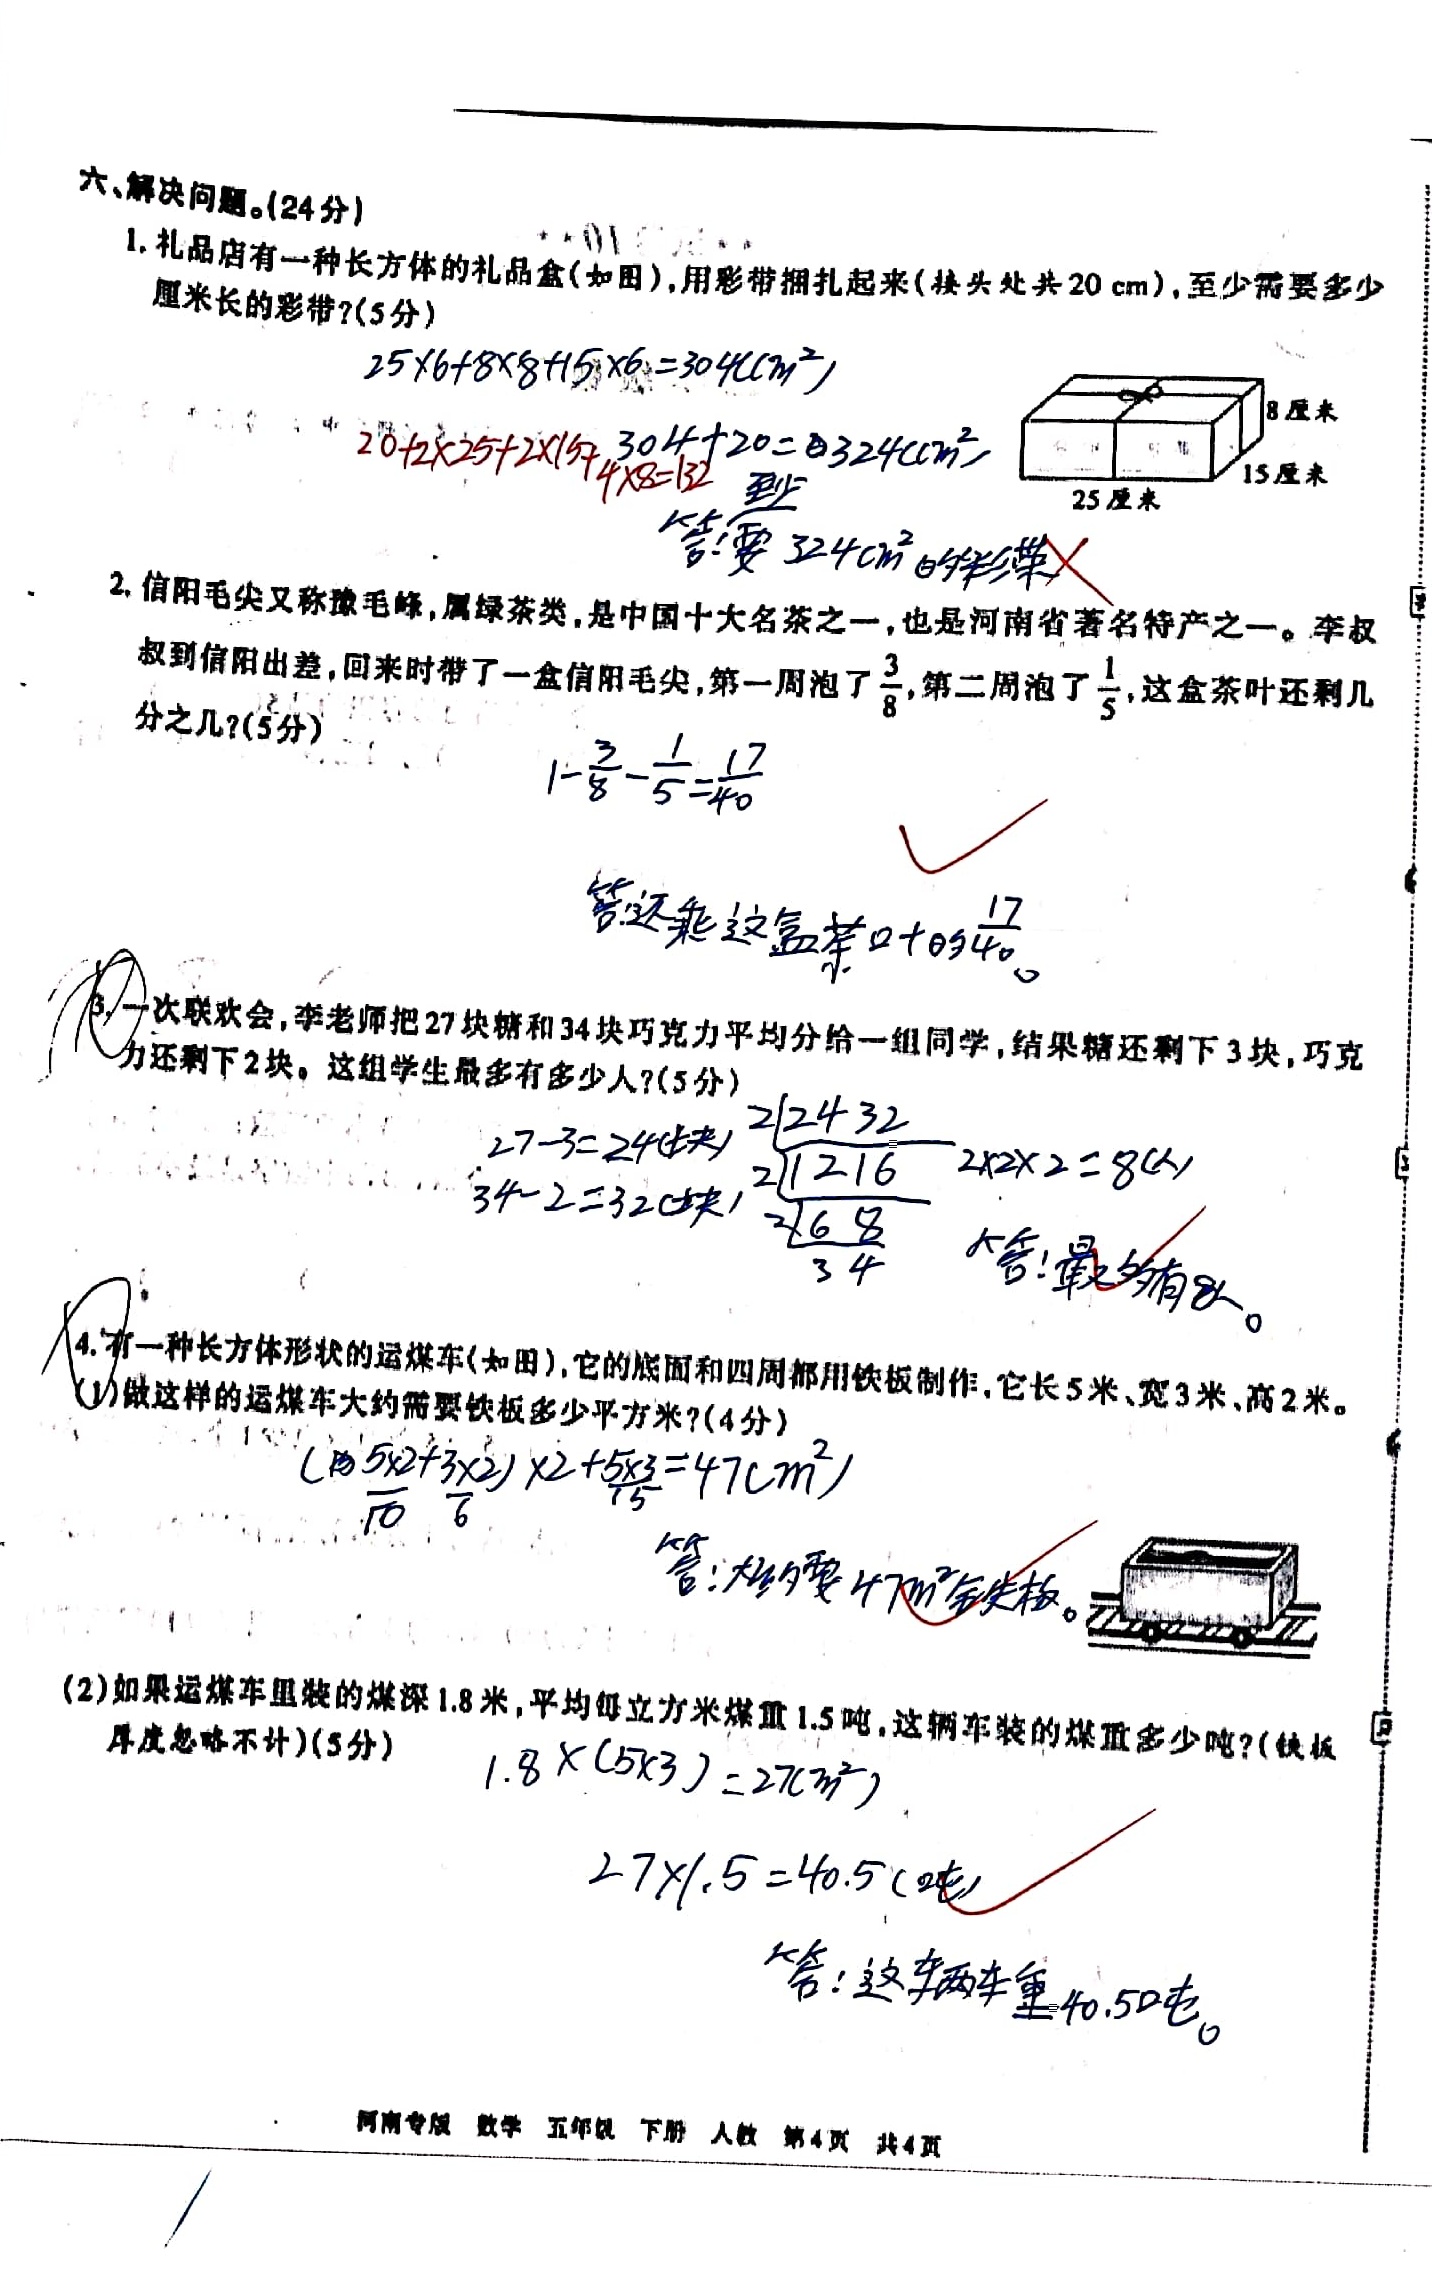 六、解决问题。(24分)
1. 礼品店有一种长方体的礼品盒(如图),用彩带捆扎起来(接头处共20 cm),至少需要多少
厘米长的彩带?(5分)
25×6+8×8+15×6=304(cm²)
20+2×25+2×15+4×8=132
304+20=324(cm²)
8厘米
15厘米
25厘米
至少
答:要324cm²的彩带
2. 信阳毛尖又称豫毛峰,属绿茶类,是中国十大名茶之一,也是河南省著名特产之一。李叔
叔到信阳出差,回来时带了一盒信阳毛尖,第一周泡了3/8,第二周泡了1/5,这盒茶叶还剩几
分之几?(5分)
1-3/8-1/5=17/40
答:还剩这盒茶叶的17/40。
3. 一次联欢会,李老师把27块糖和34块巧克力平均分给一组同学,结果糖还剩下3块,巧克
力还剩下2块。这组学生最多有多少人?(5分)
27-3=24(块)
34-2=32(块)
2 24 32
2 12 16
2 6 8
3 4
2×2×2=8(人)
答:最多有8人。
4. 有一种长方体形状的运煤车(如图),它的底面和四周都用铁板制作,它长5米、宽3米、高2米。
(1)做这样的运煤车大约需要铁板多少平方米?(4分)
(5×2+3×2)×2+5×3=47(m²)
10 6 15
答:大约要47m²铁板。
(2)如果运煤车里装的煤深1.8米,平均每立方米煤重1.5吨,这辆车装的煤重多少吨?(铁板
厚度忽略不计)(5分)
1.8×(5×3)=27(m²)
27×1.5=40.5(吨)
答:这车辆车重40.5吨。
河南专版 数学 五年级 下册 人教 第4页 共4页